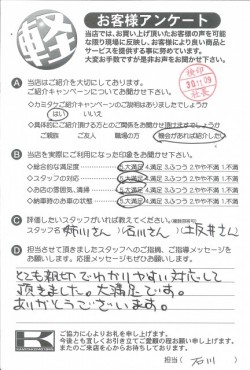 軽
お客様アンケート
当店では、お買い上げ頂いたお客様の声を可能
な限り現場に反映し、お客様により良い商品と
サービスを提供する事に努めています。
大変お手数ですが是非お声をお聞かせ下さい。
A 当店はご紹介を大切にしております。
ご紹介キャンペーンについてお聞かせ下さい。
◇カミタケご紹介キャンペーンのご説明はありましたでしょうか
はい いいえ
◇具体的にご紹介頂ける方とのご関係をお聞かせ頂けますでしょうか
ご親族 ご友人 職場の方 機会があれば紹介したい
B 当店を実際にご利用になった印象をお聞かせ下さい。
◇総合的な満足度 5.大満足 4.満足 3.ふつう 2.やや不満 1.不満
◇スタッフの対応 5.大満足 4.満足 3.ふつう 2.やや不満 1.不満
◇お店の雰囲気、清掃 5.大満足 4.満足 3.ふつう 2.やや不満 1.不満
◇納車時のお車の状態 5.大満足 4.満足 3.ふつう 2.やや不満 1.不満
C 評価したいスタッフがいれば教えてください。
スタッフ名 姉川さん 石川さん 土坂井さん
D 担当させて頂きましたスタッフへのご指摘、ご指導メッセージを
お願いします。応援メッセージもぜひお願いします。
とても親切でわかりやすい対応して
頂きました。大満足です。
ありがとうございます。
K
ご協力に心よりお礼を申し上げます。
今後とも宜しくお引き立てご愛顧の程お願い申し上げます。
またのご来店を心からお待ちしております。
担当( 石川 )